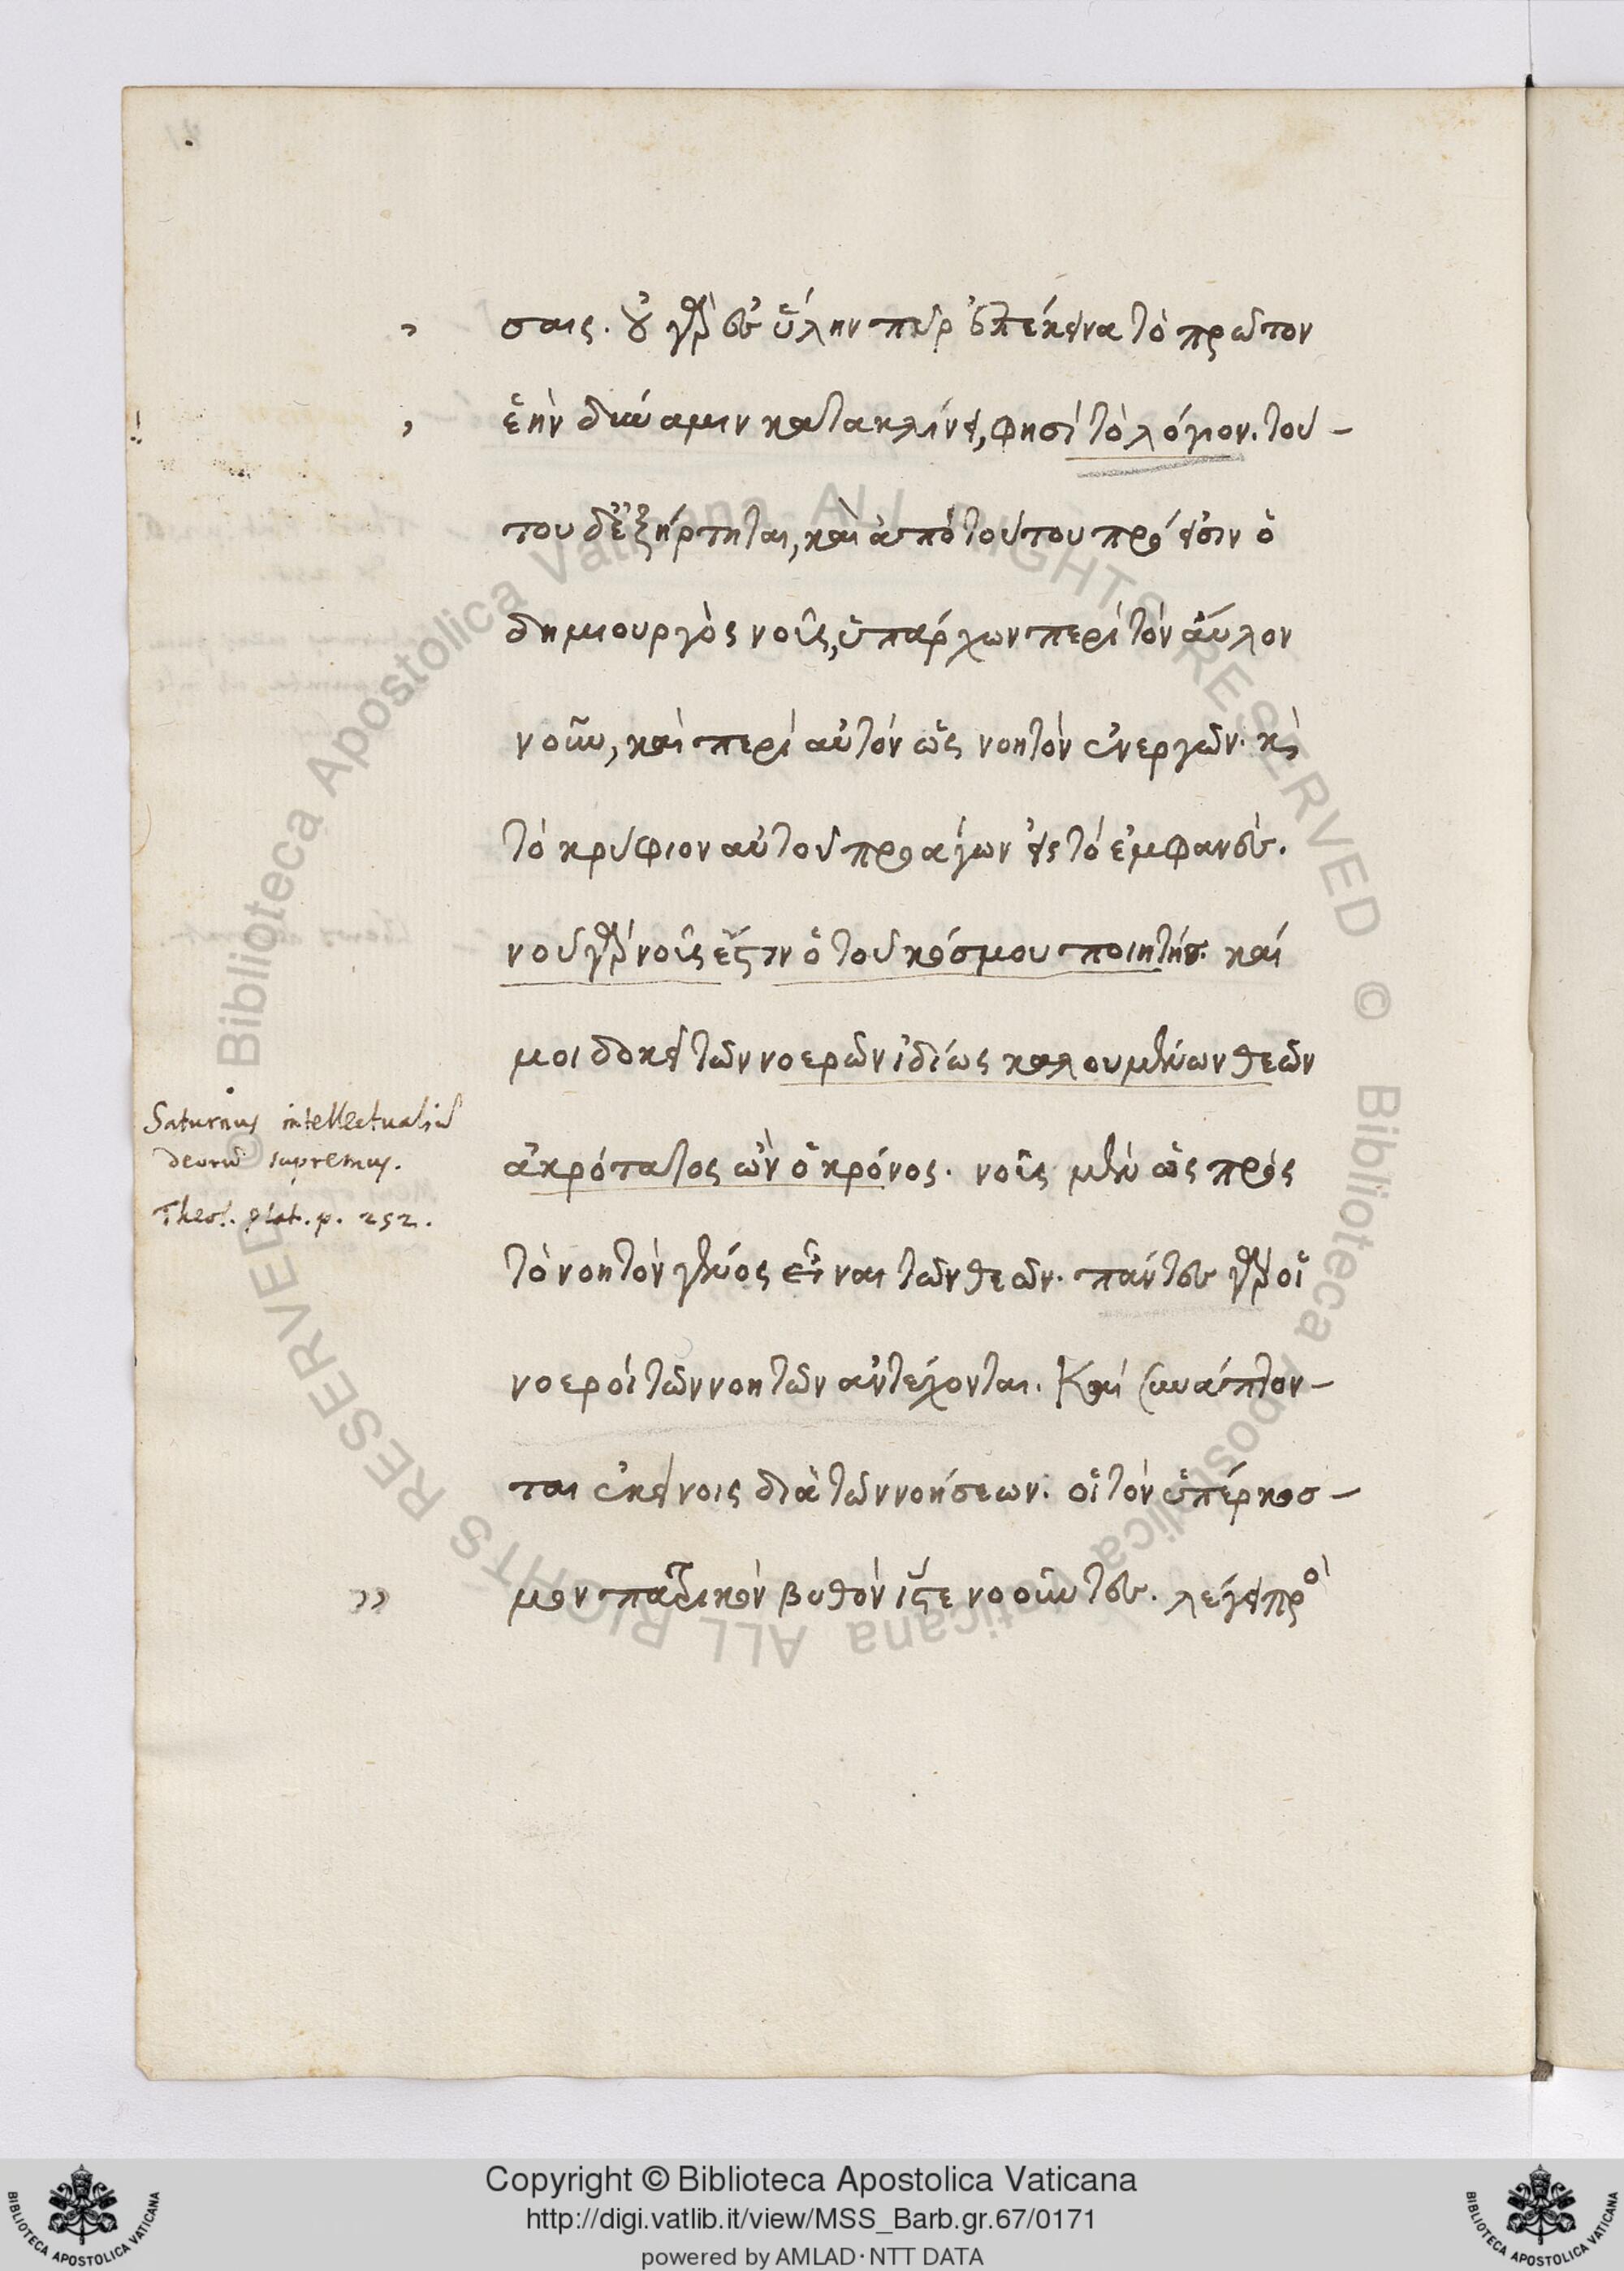 σαις. οὐ γὰρ ἐς ὕλην πῦρ ἐπέκεινα τὸ πρῶτον
ἑὴν δύναμιν κατακλίνει, φησὶ τὸ λόγιον. τού-
του δὲ ἐξήρτηται, καὶ ἀπὸ τούτου πρόεισιν ὁ
δημιουργὸς νοῦς, ὑπάρχων περὶ τὸν ἄϋλον
νοῦν, καὶ περὶ αὐτὸν ὡς νοητὸν ἐνεργῶν. κỳ
τὸ κρύφιον αὐτοῦ προάγων εἰς τὸ ἐμφανές.
νοῦ γὰρ νοῦς ἐστιν ὁ τοῦ κόσμου ποιητής. καί
μοι δοκεῖ τῶν νοερῶν ἰδίως καλουμένων θεῶν
Saturnus intellectualiũ
deorũ supremus.
Theol. plat. p. 252.
ἀκρότατος ὢν ὁ κρόνος. νοῦς μὲν ὡς πρὸς
τὸ νοητὸν γένος εἶναι τῶν θεῶν. πάντες γὰρ οἱ
νοεροὶ τῶν νοητῶν ἀντέχονται. Καὶ συνάπτον-
ται ἐκείνοις διὰ τῶν νοήσεων. οἳ τὸν ὑπέρκοσ-
μον πατρικὸν βυθὸν ἴστε νοοῦντες. λέγει πρὸ
Copyright © Biblioteca Apostolica Vaticana
http://digi.vatlib.it/view/MSS_Barb.gr.67/0171
powered by AMLAD·NTT DATA
BIBLIOTECA APOSTOLICA VATICANA
BIBLIOTECA APOSTOLICA VATICANA
© Biblioteca Apostolica Vaticana ALL RIGHTS RESERVED
© Biblioteca Apostolica Vaticana ALL RIGHTS RESERVED